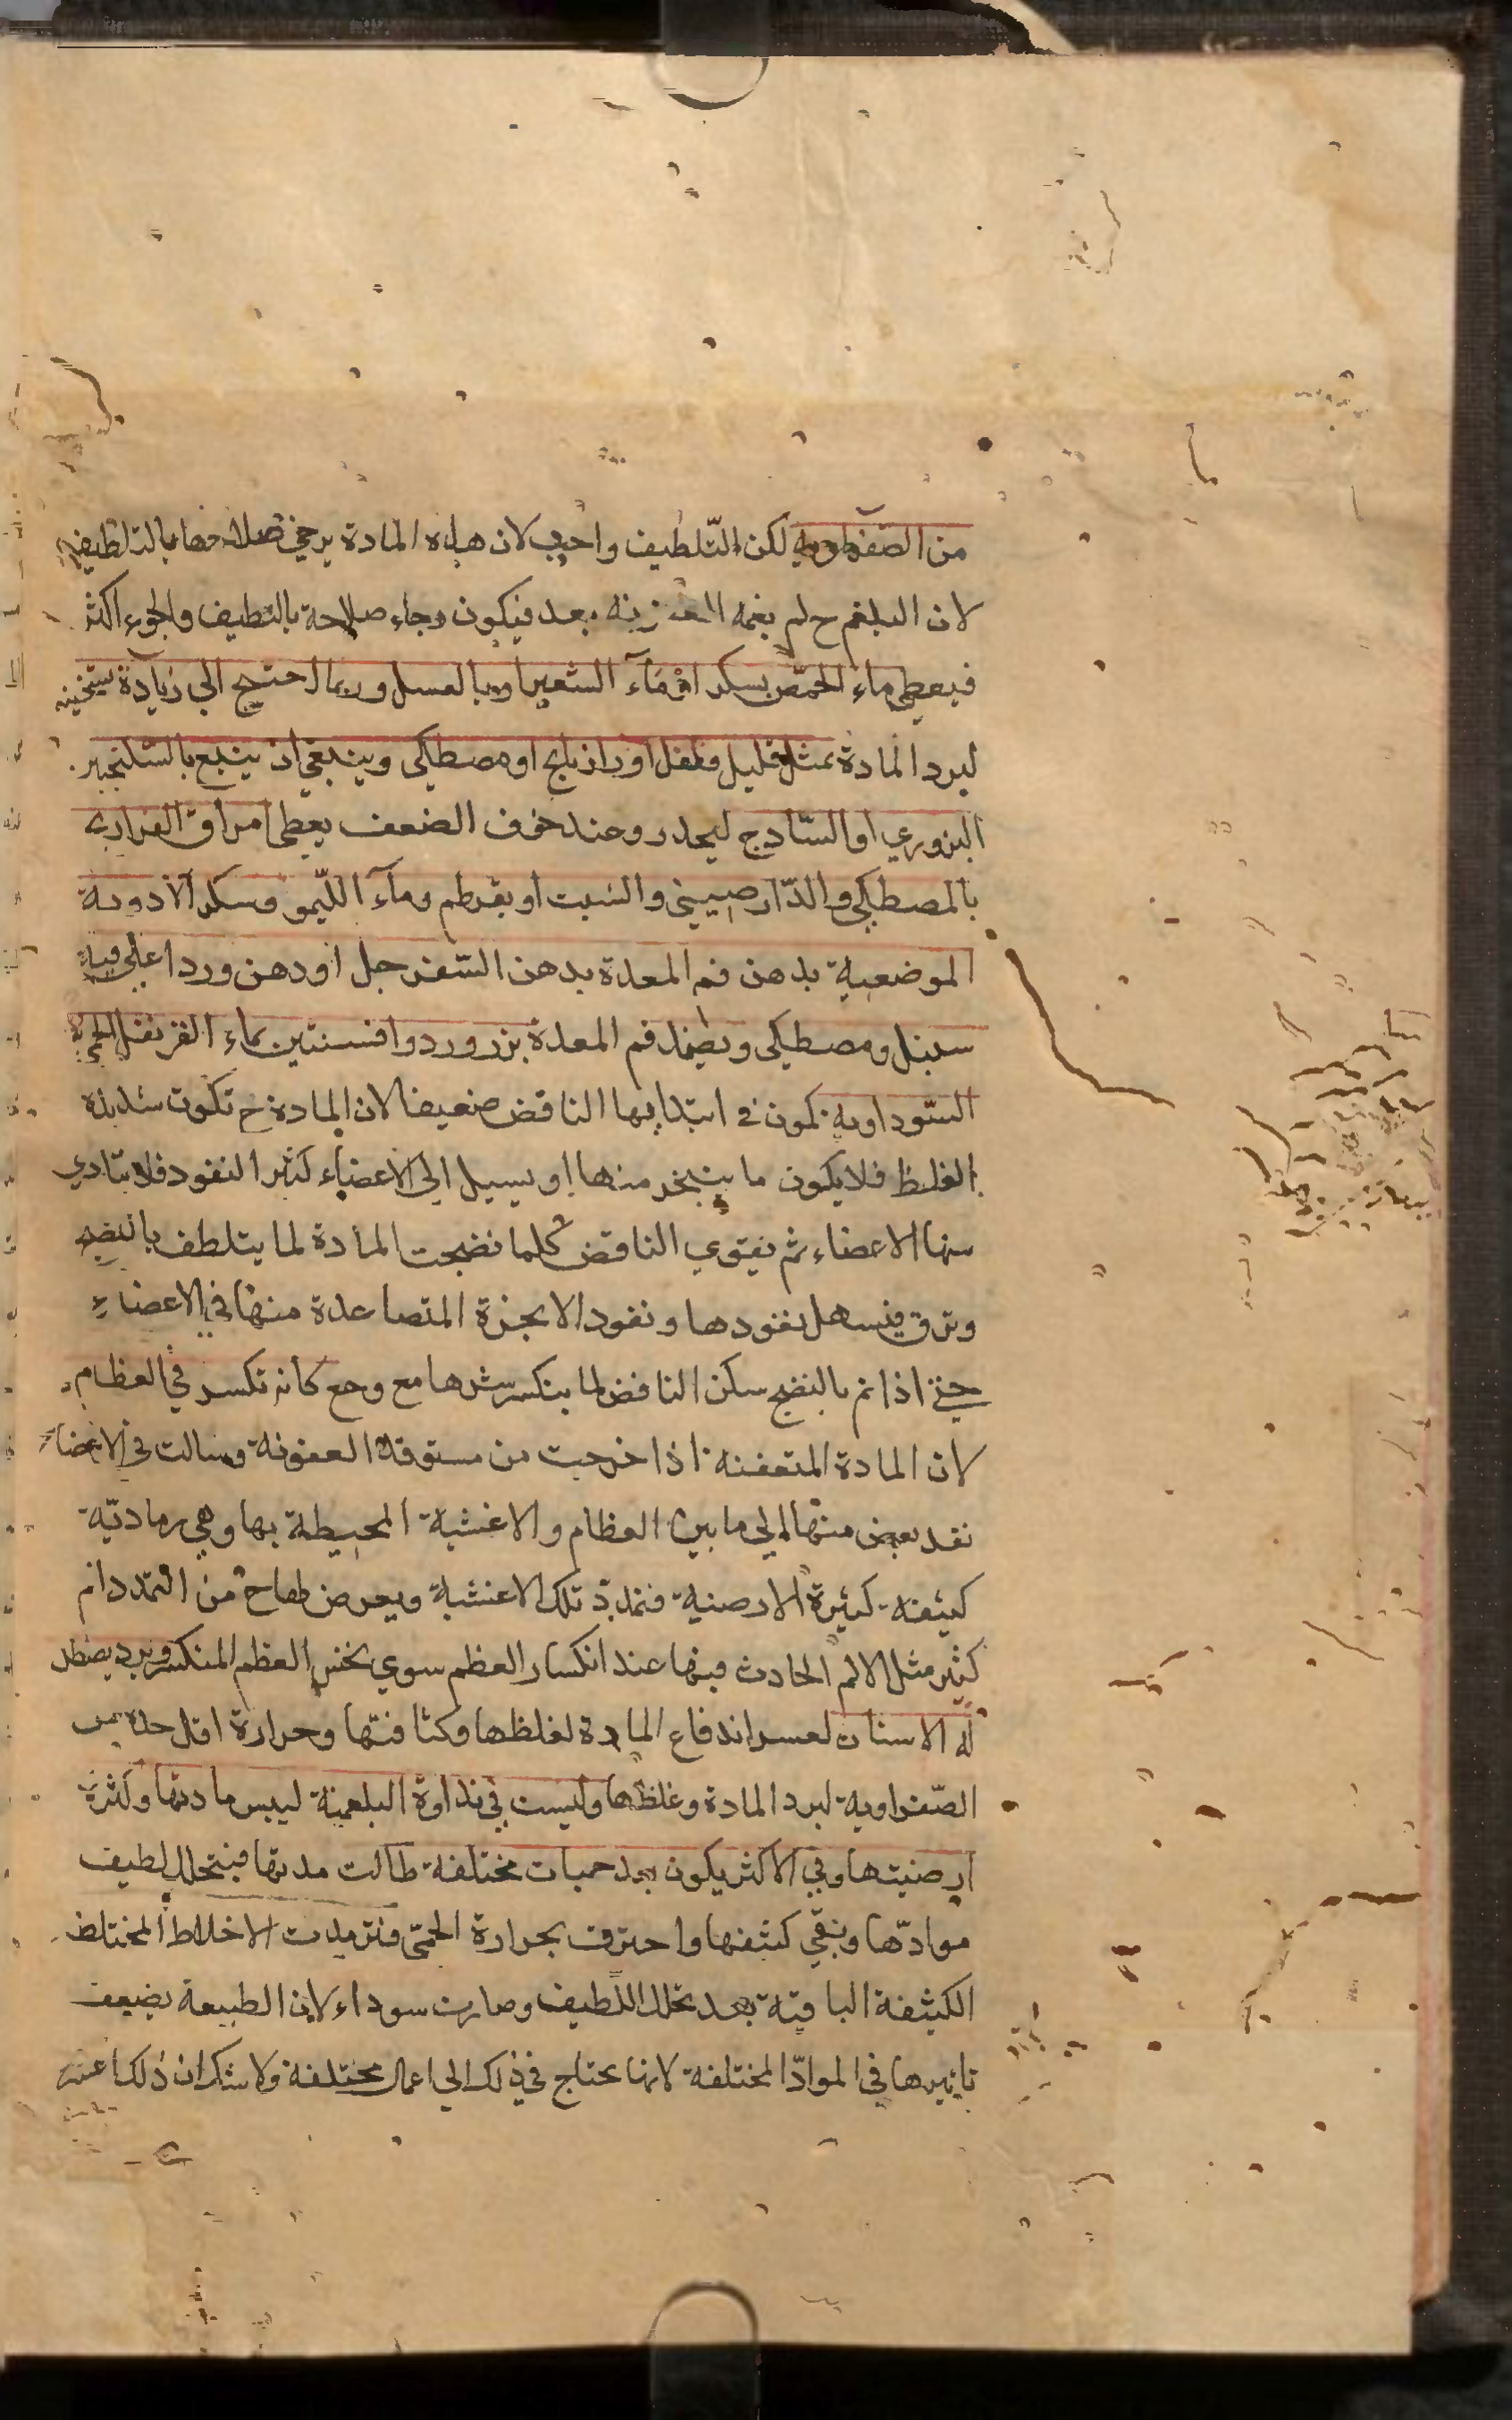 من الصفراوية لكن التّلطيف واجب لان هذه المادة يرجي صلاحها بالتلطيف
لان البلغم ح لم يغمه بعد فيكون رجاء صلاحة بالتطيف والجوع اكثر
فيعطي ماء الحمّص بسكر او مَآء الشعير او بالعسل وربما احتيج الي زيادة تسخينه
لبرد المادة بمثل قليل فلفل او رازيانج او مصطكي وينبغي ان يتبع بالسكنجبين
البزوري او السّادج ليحدر وعند خوف الضعف يعطي امراق الفراريج
بالمصطكي والدّارصيني والشبت او بقرطم ومآء اللّيمو وسكر الادوية
الموضعية يدهن فم المعدة بدهن السّفرجل او دهن ورد اغلي فيه
سنبل ومصطكي ويضمد فم المعدة بزر ورد وافسنتين بماء القرنفل الحمي
السّوداوية يكون في ابتدايها النافض ضعيفا لان المادة ح تكون شديدة
الغلظ فلا يكون ما يتبخر منها او يسيل الي الاعضاء كثير النفود فلا يتادي
منها الاعضاء ثم يقوي النافض كلما نضجت المادة لما يتلطف بالنضج
وترق فيسهل نفودها ونفود الابخرة المتصاعدة منها في الاعضاء
حتي اذا تم بالنضج سكن النافض لما ينكسر شرها مع وجع كانه تكسر في العظام
لان المادة المتعفنة اذا خرجت من مستوقد العفونة وسالت في الاعضاء
نفد بعض منها الي ما بين العظام والاغشية المحيطة بها وهي رماديّة
كثيفة كثيرة الارضية فتمدد تلك الاغشية ويعرض لها ح من التمدد الم
كثير مثل الالم الحادث فيها عند انكسار العظم سوي نخس العظم المنكسر وبرد يصطك
له الاسنان لعسر اندفاع المادة لغلظها وكثافتها وحرارة اقل حدة من
الصّفراوية لبرد المادة وغلظها وليست في نداوة البلغمية ليبس مادتها وكثرة
ارضيتها وفي الاكثر يكون بعد حميات مختلفة طالت مدتها فيتحلل لطيف
موادّها وبقي كثيفها واحترق بحرارة الحمّي فترمدت الاخلاط المختلفة
الكثيفة الباقية بعد تحلل اللّطيف وصارت سوداء لان الطبيعة يضيعف
تاثيرها في الموادّ المختلفة لانها يحتاج في ذلك الي اعمال مختلفة ولا شك ان ذلك اعسر